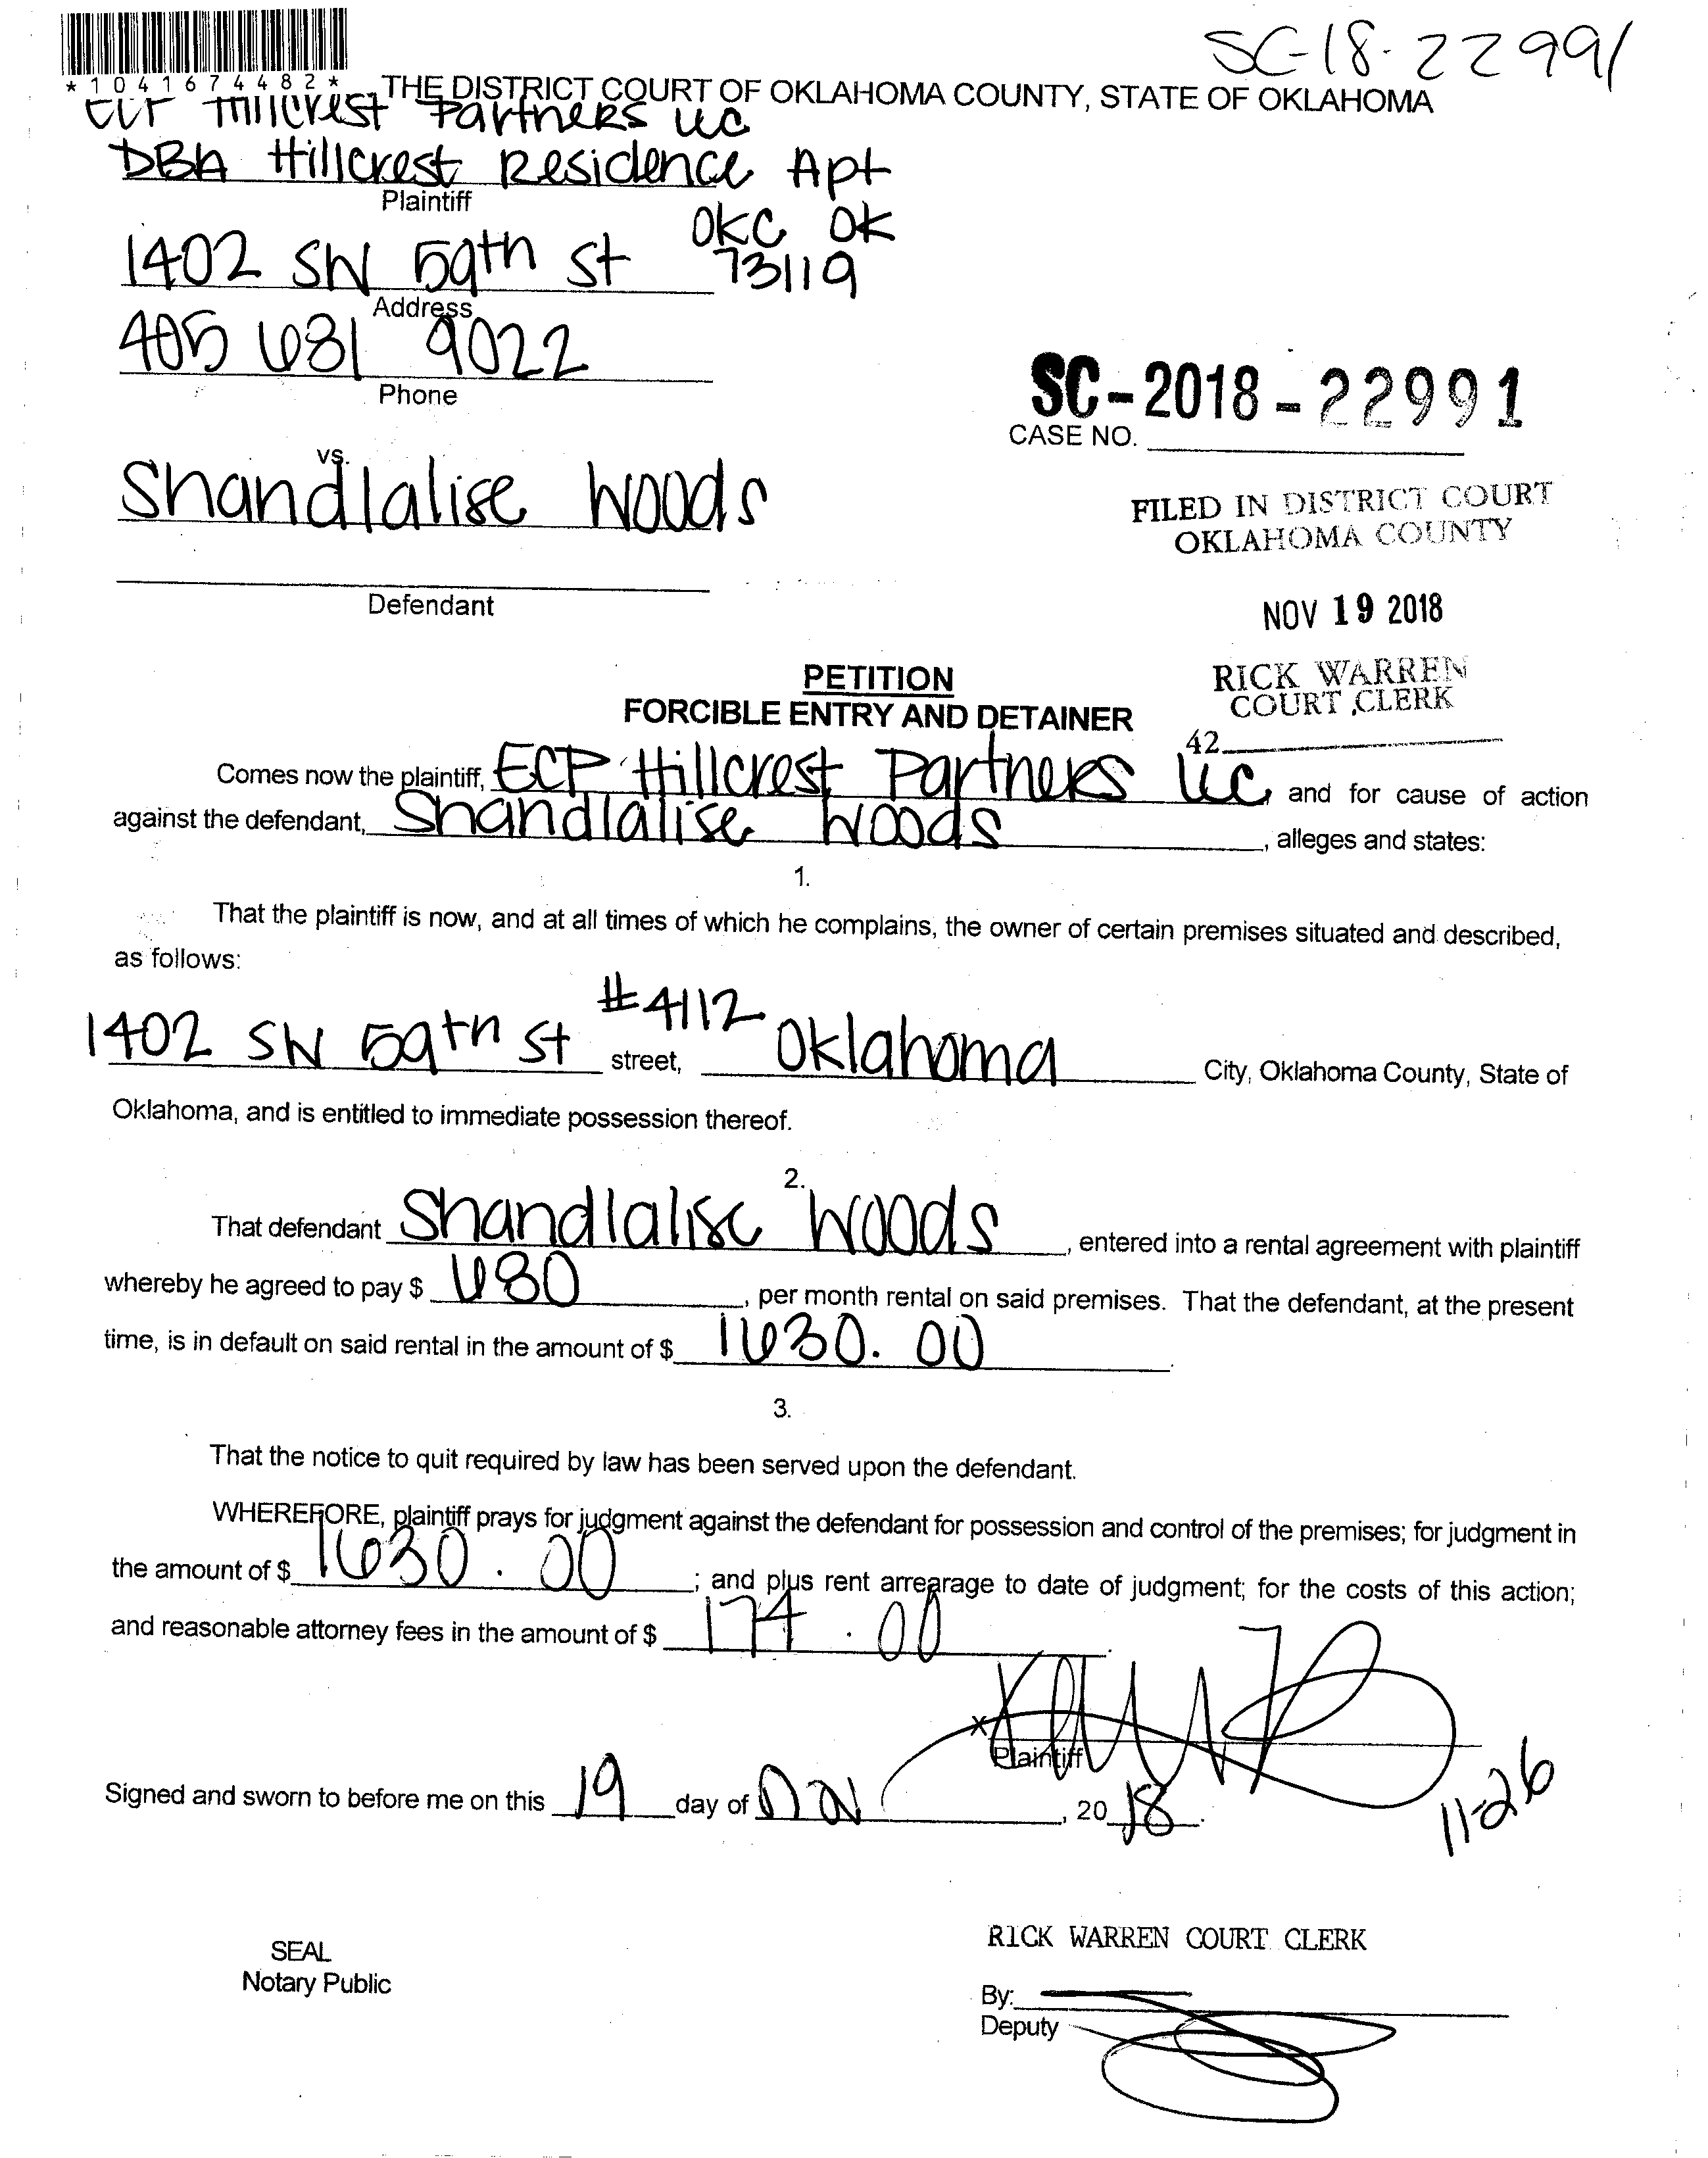 SC-18-22991
*1041674482*
THE DISTRICT COURT OF OKLAHOMA COUNTY, STATE OF OKLAHOMA
ECP Hillcrest Partners LLC
DBA Hillcrest Residence Apt
Plaintiff
OKC OK
1402 SW 59th St 73119
Address
405 681 9022
Phone
SC-2018-22991
CASE NO.
vs.
Shandlalise Woods
FILED IN DISTRICT COURT
OKLAHOMA COUNTY
Defendant
NOV 19 2018
PETITION
FORCIBLE ENTRY AND DETAINER
RICK WARREN
COURT CLERK
42
Comes now the plaintiff, ECP Hillcrest Partners LLC, and for cause of action
against the defendant, Shandlalise Woods, alleges and states:
1.
That the plaintiff is now, and at all times of which he complains, the owner of certain premises situated and described,
as follows:
1402 SW 59th St #4112 street, Oklahoma City, Oklahoma County, State of
Oklahoma, and is entitled to immediate possession thereof.
2.
That defendant Shandlalise Woods, entered into a rental agreement with plaintiff
whereby he agreed to pay $ 680, per month rental on said premises. That the defendant, at the present
time, is in default on said rental in the amount of $ 1630.00.
3.
That the notice to quit required by law has been served upon the defendant.
WHEREFORE, plaintiff prays for judgment against the defendant for possession and control of the premises; for judgment in
the amount of $ 1630.00; and plus rent arrearage to date of judgment; for the costs of this action;
and reasonable attorney fees in the amount of $ 174.00.
X
Plaintiff
Signed and sworn to before me on this 19 day of Nov, 2018.
11-26
RICK WARREN COURT CLERK
SEAL
Notary Public
By:
Deputy